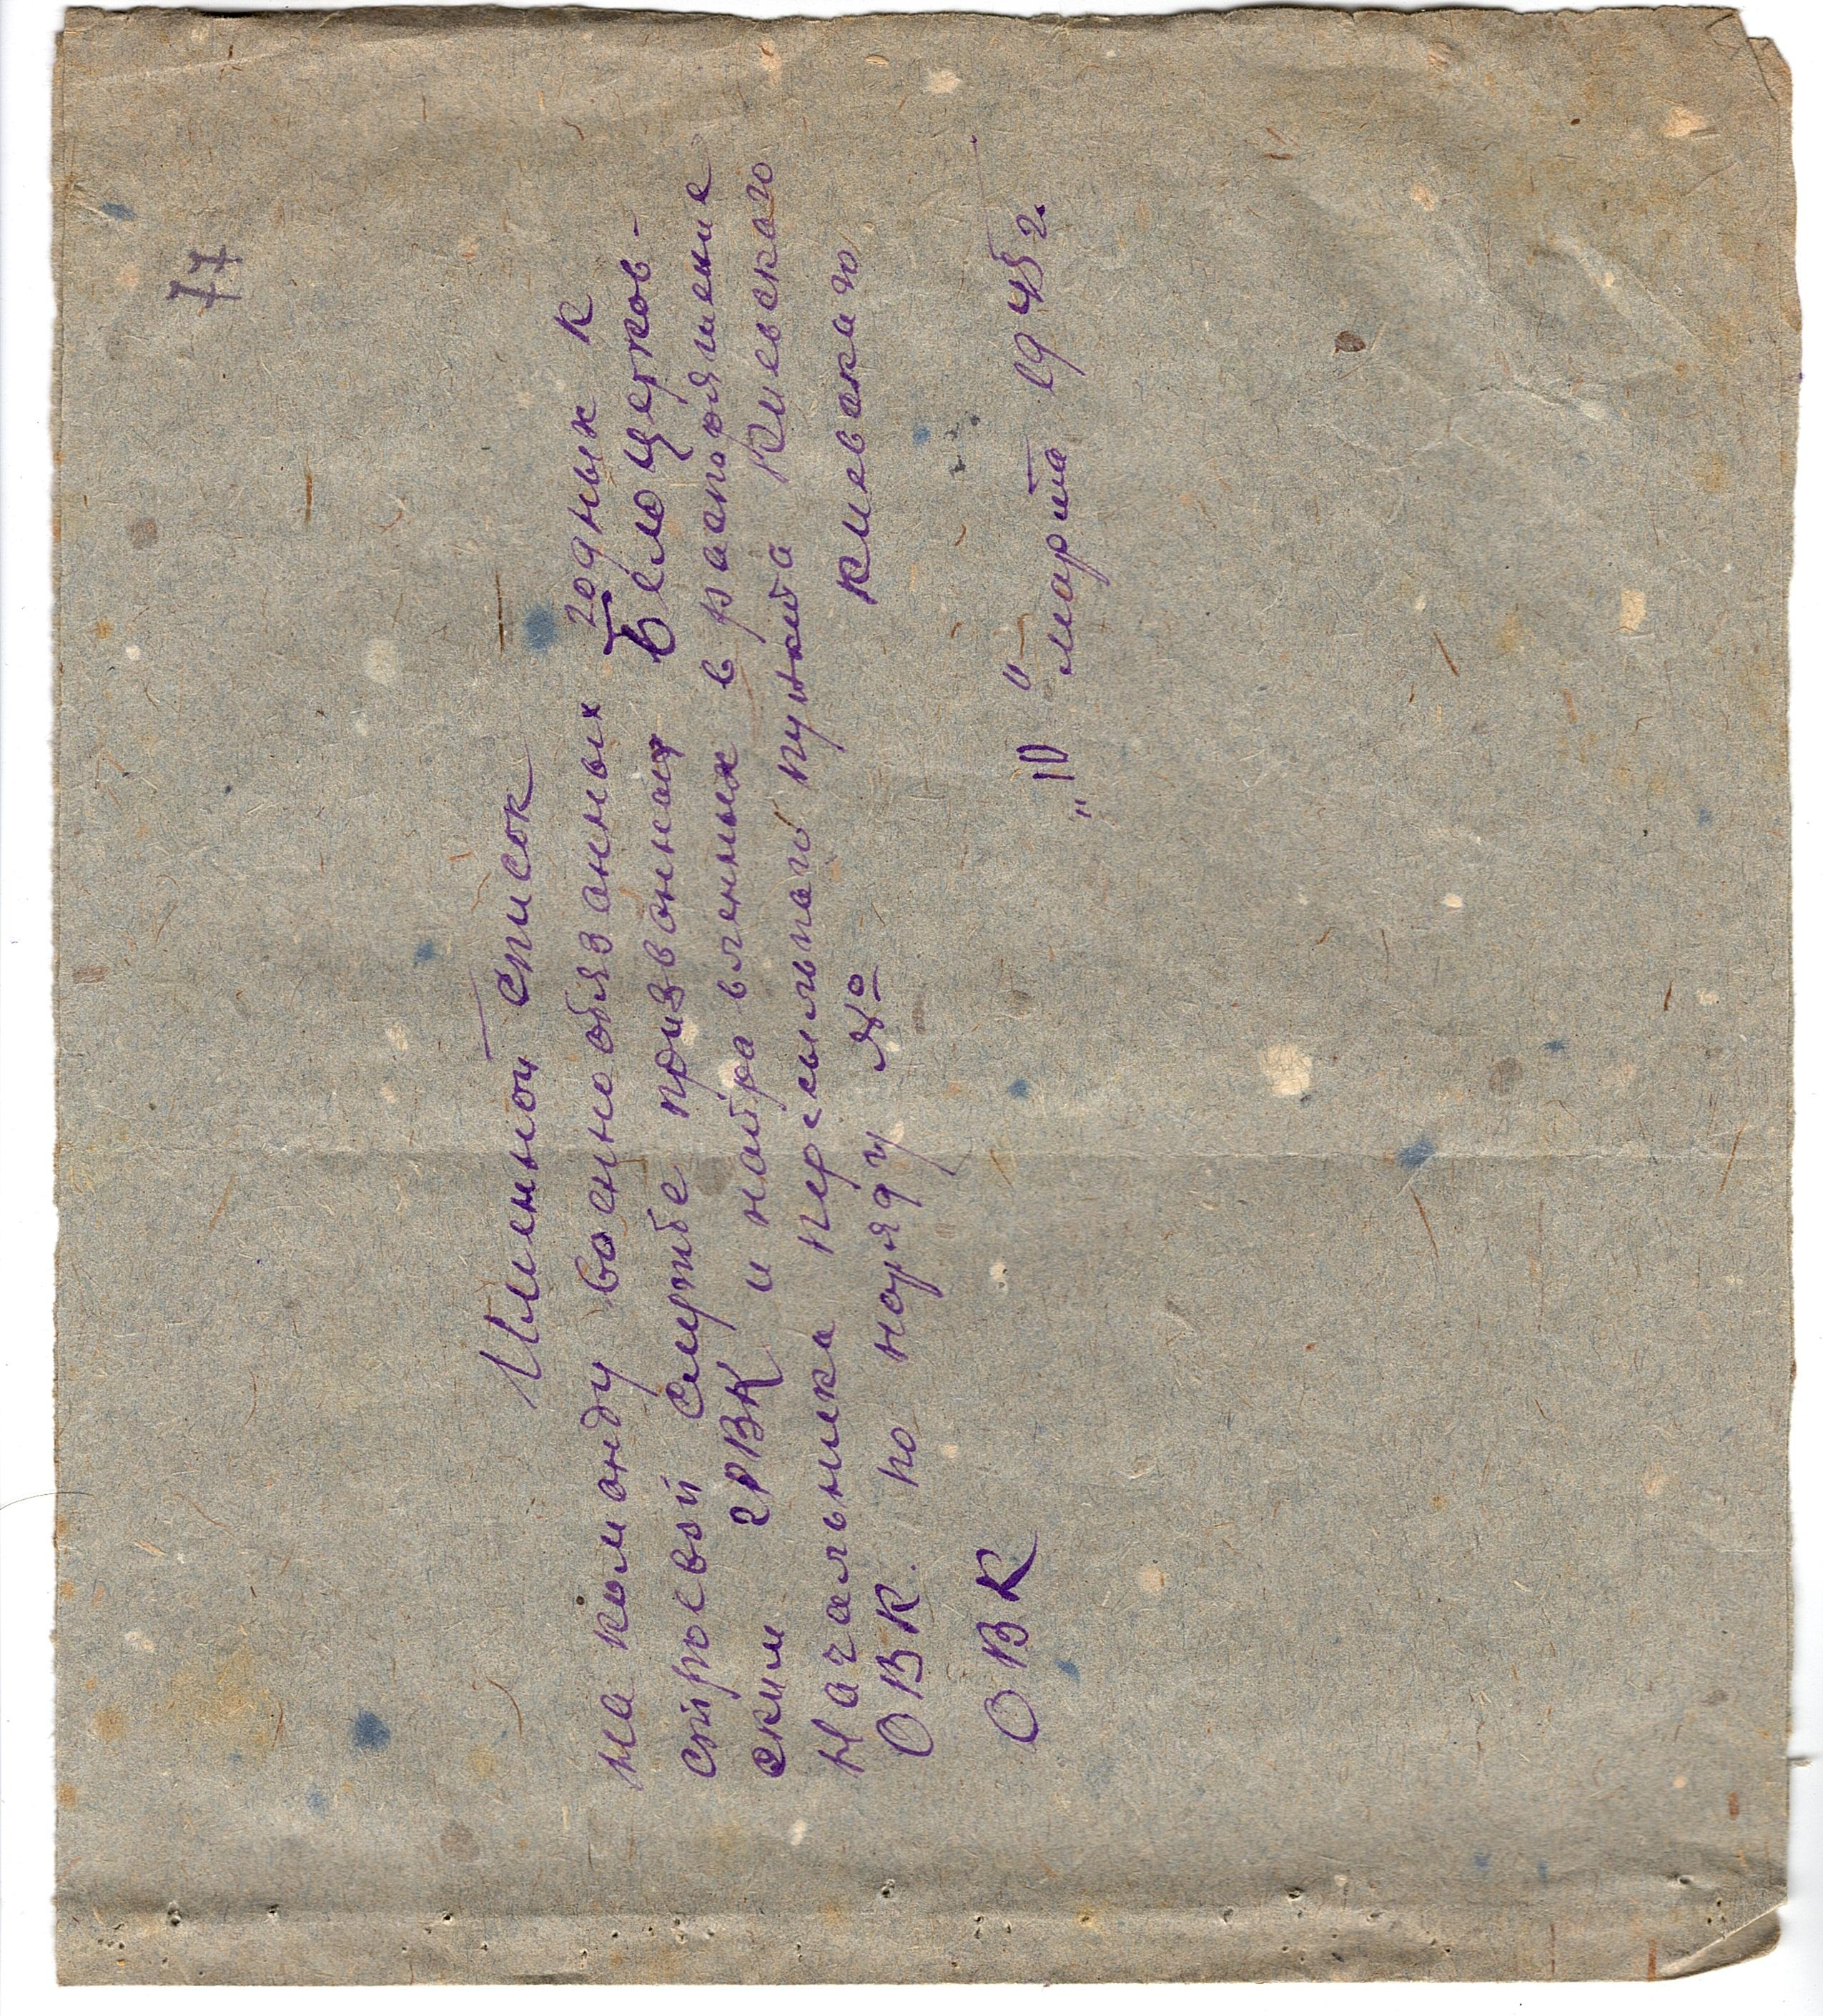 77
Именной список
на команду военнообязанных годных к
строевой службе призванных Белоцерков-
ским ГРВК и направленных в распоряжение
Начальника пересыльного пункта Киевского
ОВК. по наряду № Киевского
ОВК "10" марта 1945 г.